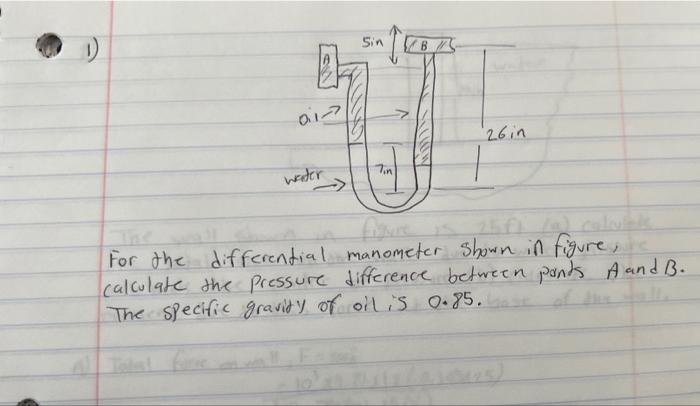 1)
5in
B
A
oil
26in
7in
water
For the differential manometer shown in figure,
calculate the pressure difference between points A and B.
The specific gravity of oil is 0.85.